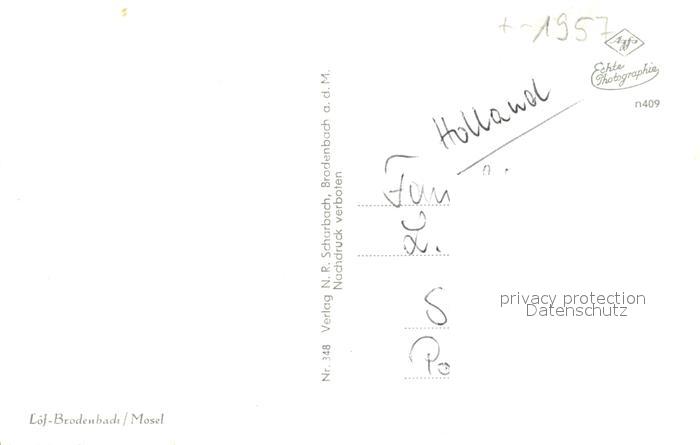 +-1957
Agfa
Echte
Photographie
n409
Holland
Fam
L.
S
Po
privacy protection
Datenschutz
Nr. 348 Verlag N. R. Scharbach, Brodenbach a. d. M.
Nachdruck verboten
Löf-Brodenbach / Mosel